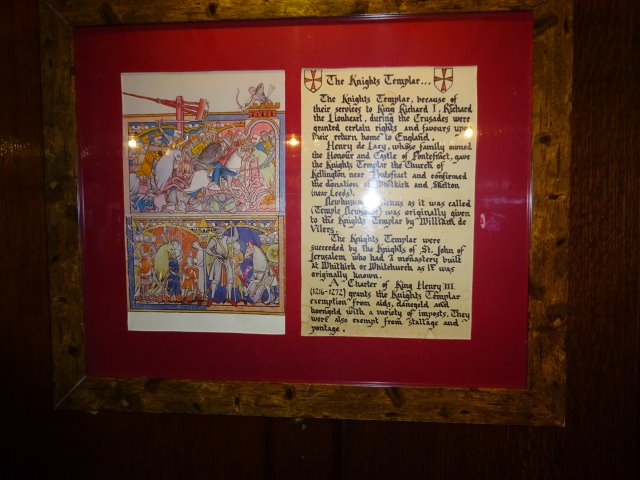 The Knights Templar...
The Knights Templar, because of
their services to King Richard I, Richard
the Lionheart, during the Crusades were
granted certain rights and favours upon
their return home to England.
Henry de Lacy, whose family owned
the Honour and Castle of Pontefract, gave
the Knights Templar the Church of
Kellington near Pontefract and confirmed
the donation of Whitkirk and Skelton
(near Leeds).
as it was called
(Temple Newsome) was originally given
to the Knights Templar by William de
Vilers.
The Knights Templar were
succeeded by the Knights of St. John of
Jerusalem who had a monastery built
at Whitkirk or Whitechurch as it was
originally known.
A Charter of King Henry III
(1216-1272) grants the Knights Templar
exemption from aids, danegeld and
horngeld with a variety of imposts. They
were also exempt from stallage and
pontage.